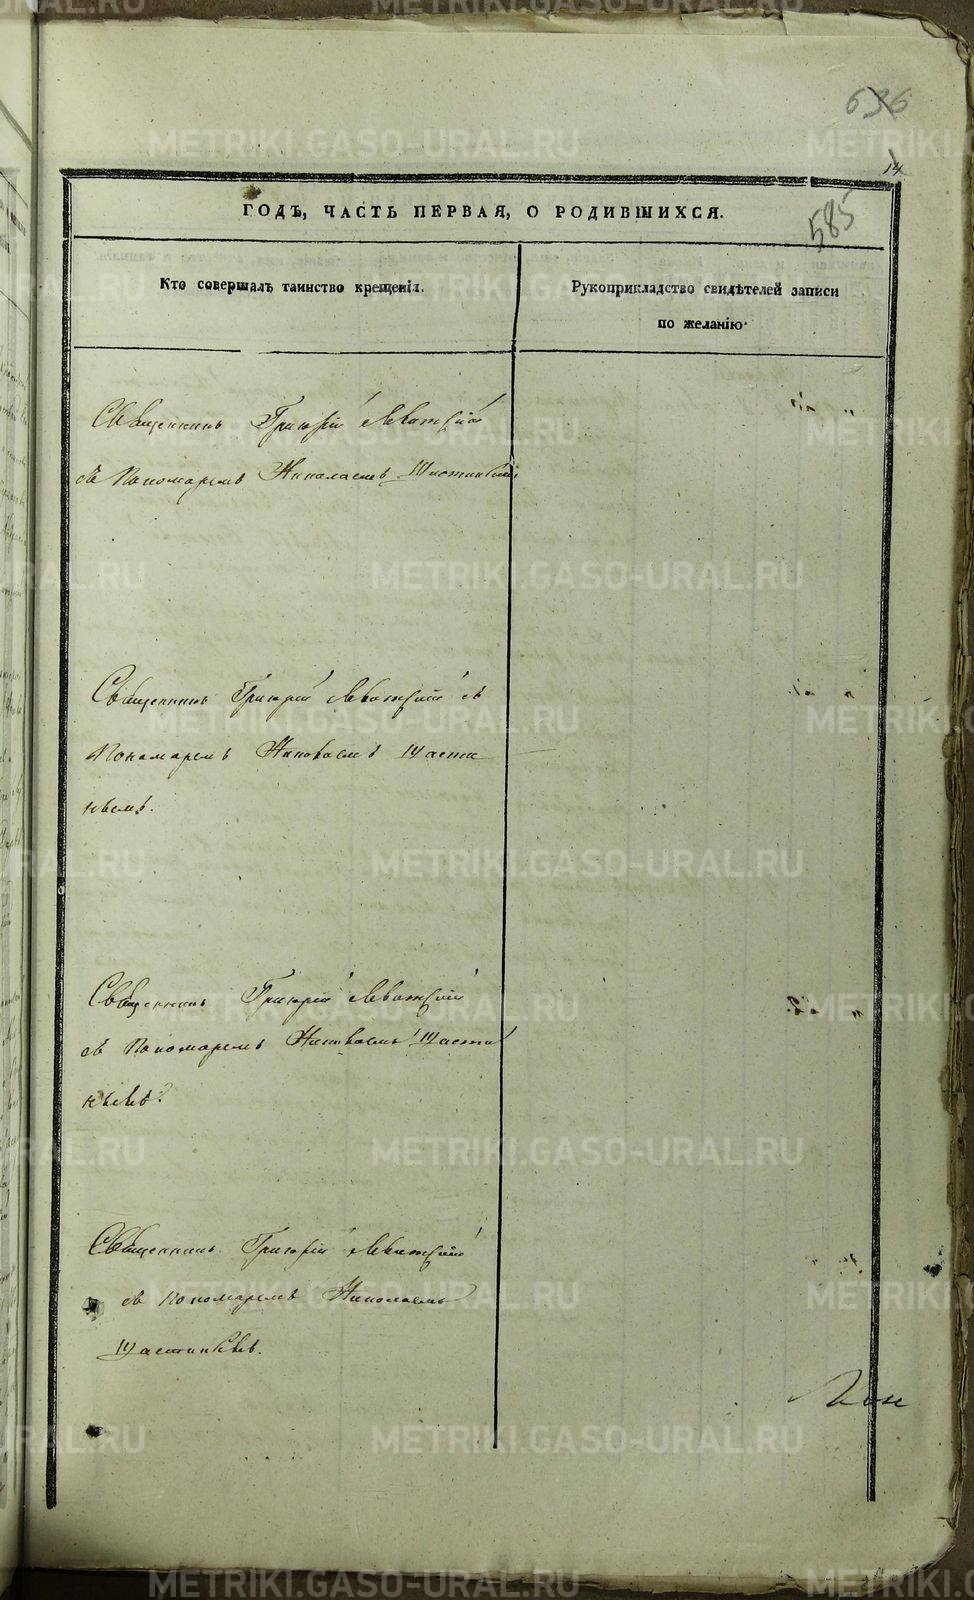 636
14
585
ГОДЪ, ЧАСТЬ ПЕРВАЯ, О РОДИВШИХСЯ.
Кто совершалъ таинство крещенія.
Рукоприкладство свидѣтелей записи
по желанію
Священникъ Григорій Левитскій
съ Пономаремъ Николаемъ
Священникъ Григорій Левитскій съ
Пономаремъ Николаемъ
Священникъ Григорій Левитскій
съ Пономаремъ Николаемъ
Священникъ Григорій Левитскій
съ Пономаремъ Николаемъ
METRIKI.GASO-URAL.RU